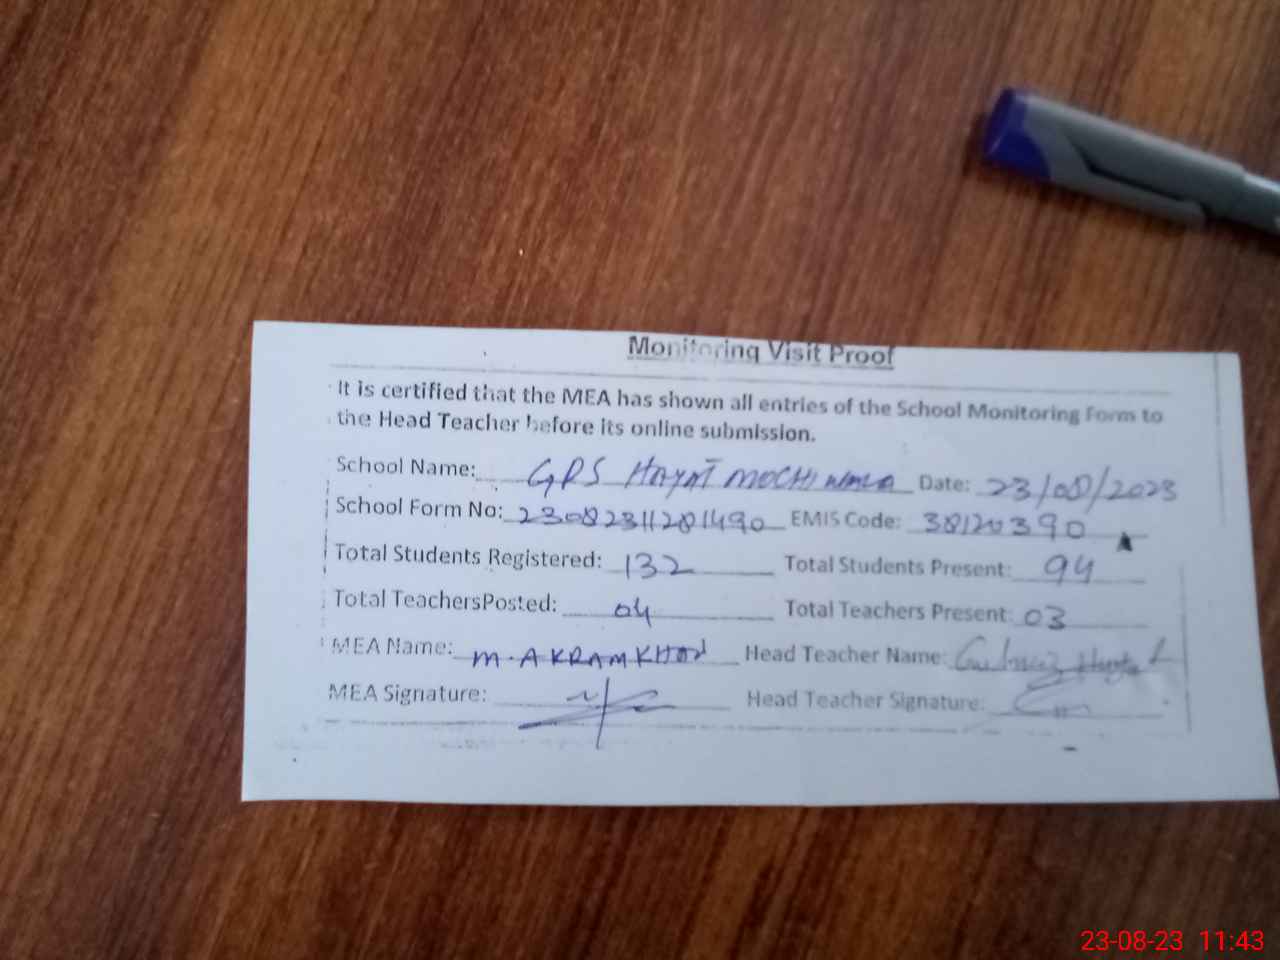 Monitoring Visit Proof
It is certified that the MEA has shown all entries of the School Monitoring Form to
the Head Teacher before its online submission.
School Name: GPS HAYAT MOCHI WALA Date: 23/08/2023
School Form No: 23082311281490 EMIS Code: 38120390
Total Students Registered: 132 Total Students Present: 94
Total TeachersPosted: 04 Total Teachers Present: 03
MEA Name: M.AKRAM KHAN Head Teacher Name:
MEA Signature: Head Teacher Signature:
23-08-23 11:43